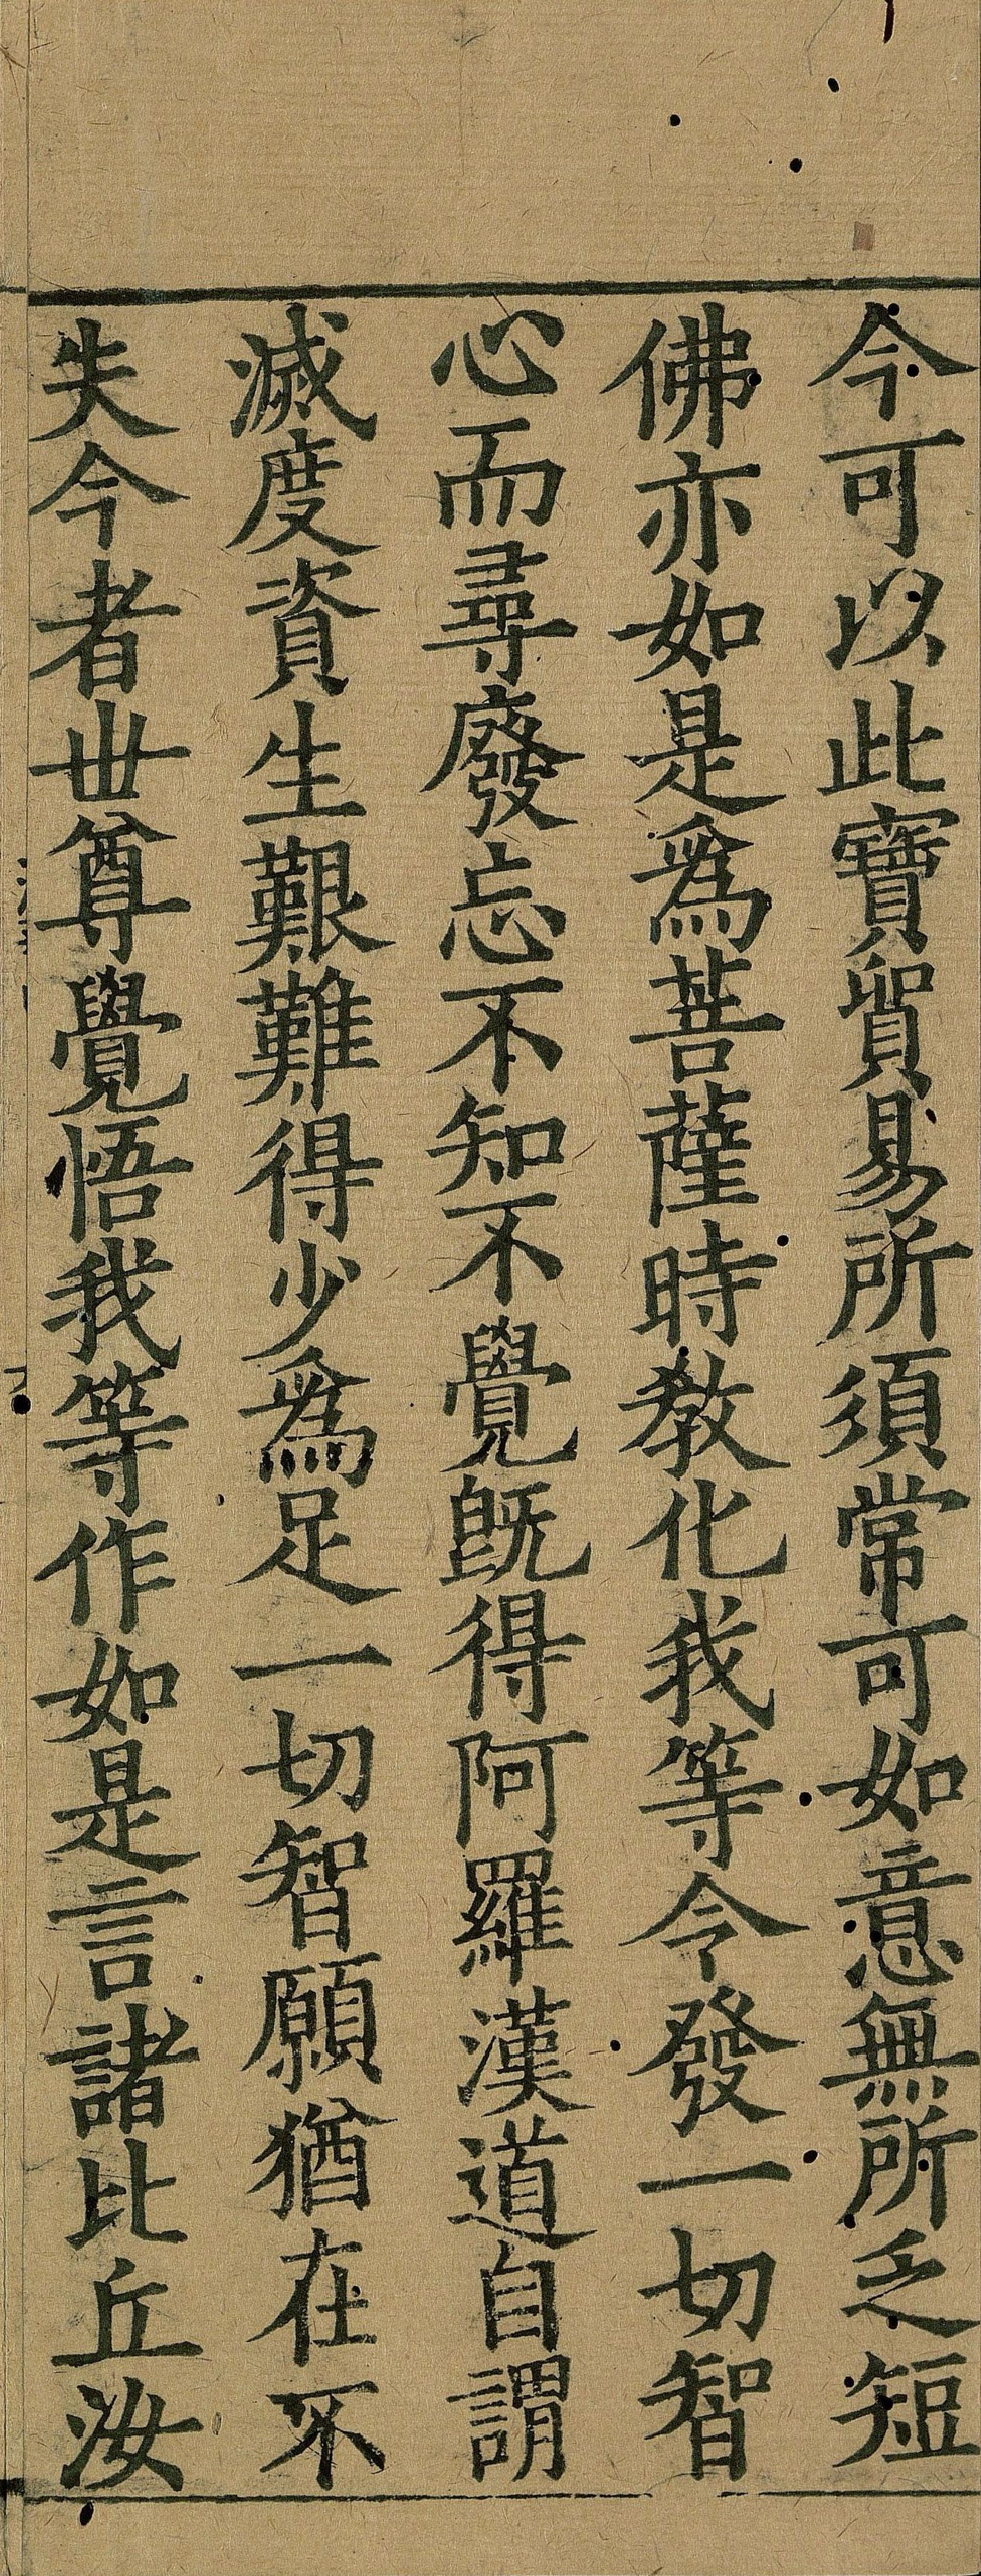 今可以此寶貿易所須常可如意無所乏短
佛亦如是爲菩薩時教化我等令發一切智
心而尋廢忘不知不覺既得阿羅漢道自謂
滅度資生艱難得少爲足一切智願猶在不
失今者世尊覺悟我等作如是言諸比丘汝